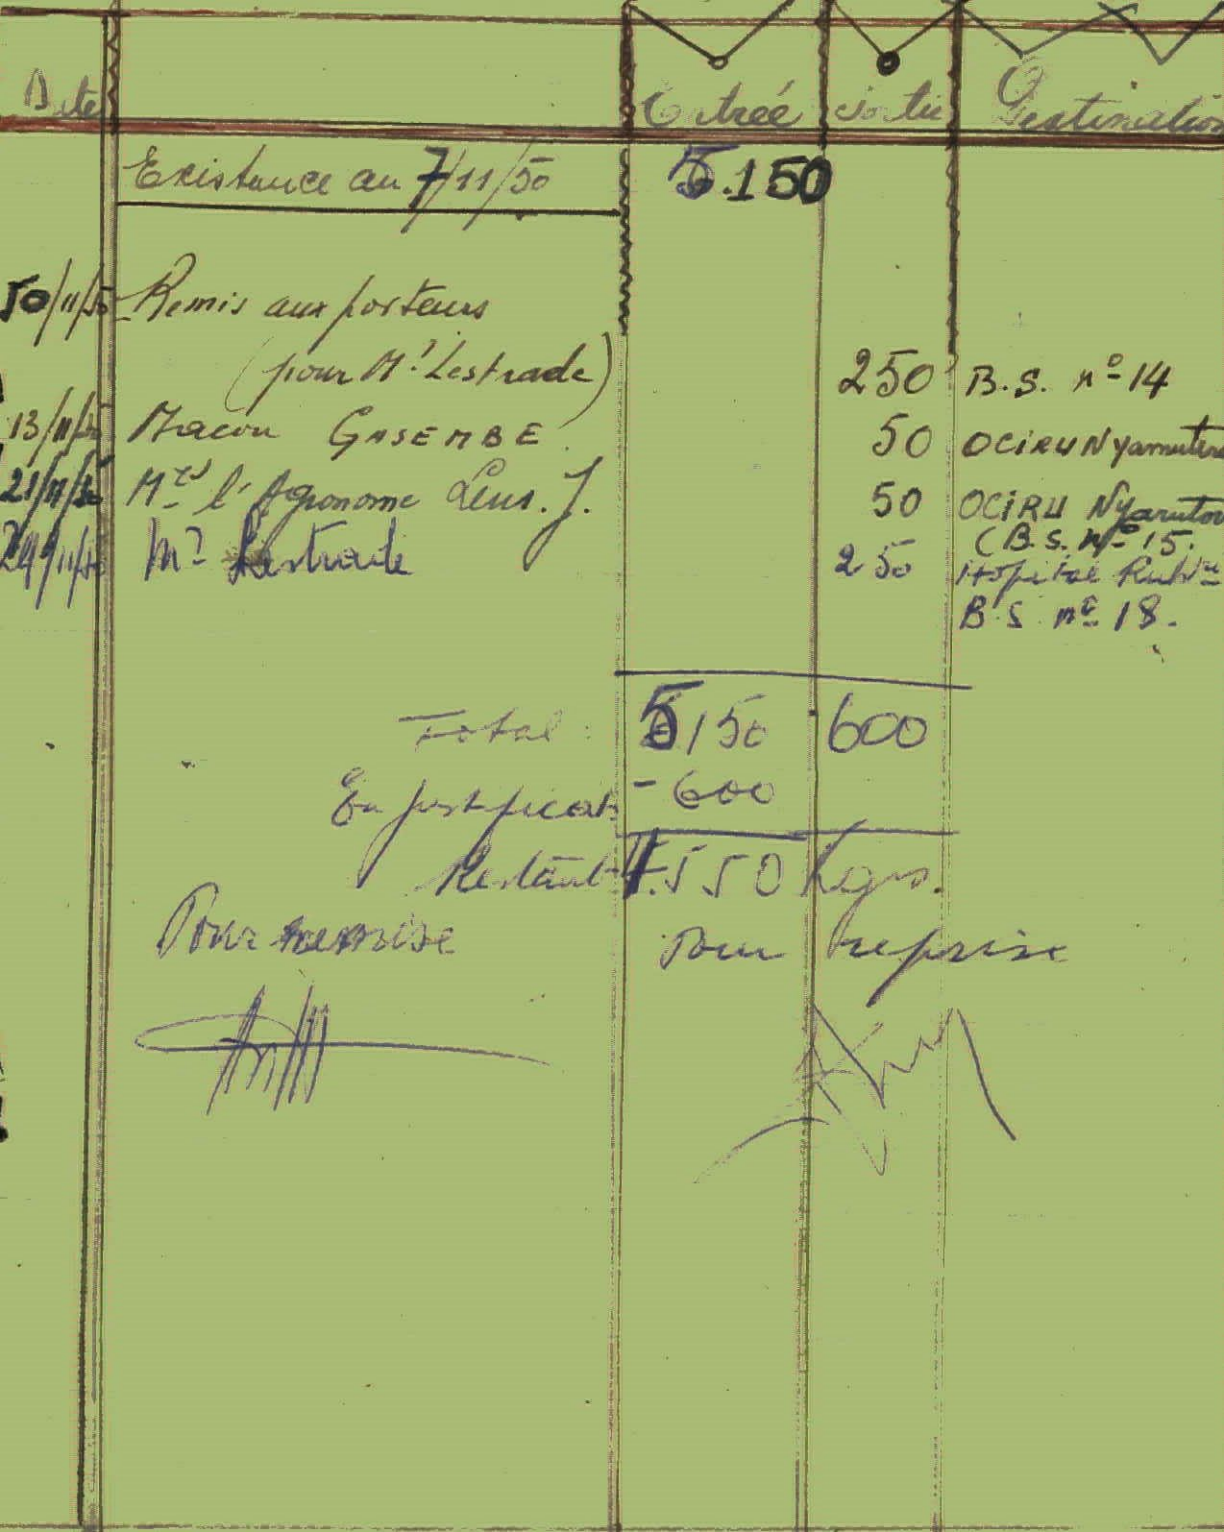 Date Entrée Sortie Destination
Existance au 7/11/50 5.150
10/11/50 Remis aux porteurs
(pour Mr Lestrade) 250 B.S. nº 14
13/11/50 Macon GASEMBE. 50 OCIRU
21/11/50 l'Agronome Lens. J. 50 OCIRU
(B.S. nº 15.
24/11/50 Mr Lestrade 250 Hopital
B.S. nº 18.
Total : 5150 600
- 600
Restant 4.550 kgs.
Pour remise Pour reprise